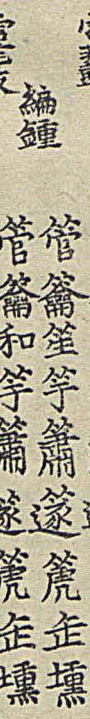 編鍾
管籥笙竽簫篴箎缶壎
管籥和竽簫篴箎缶壎